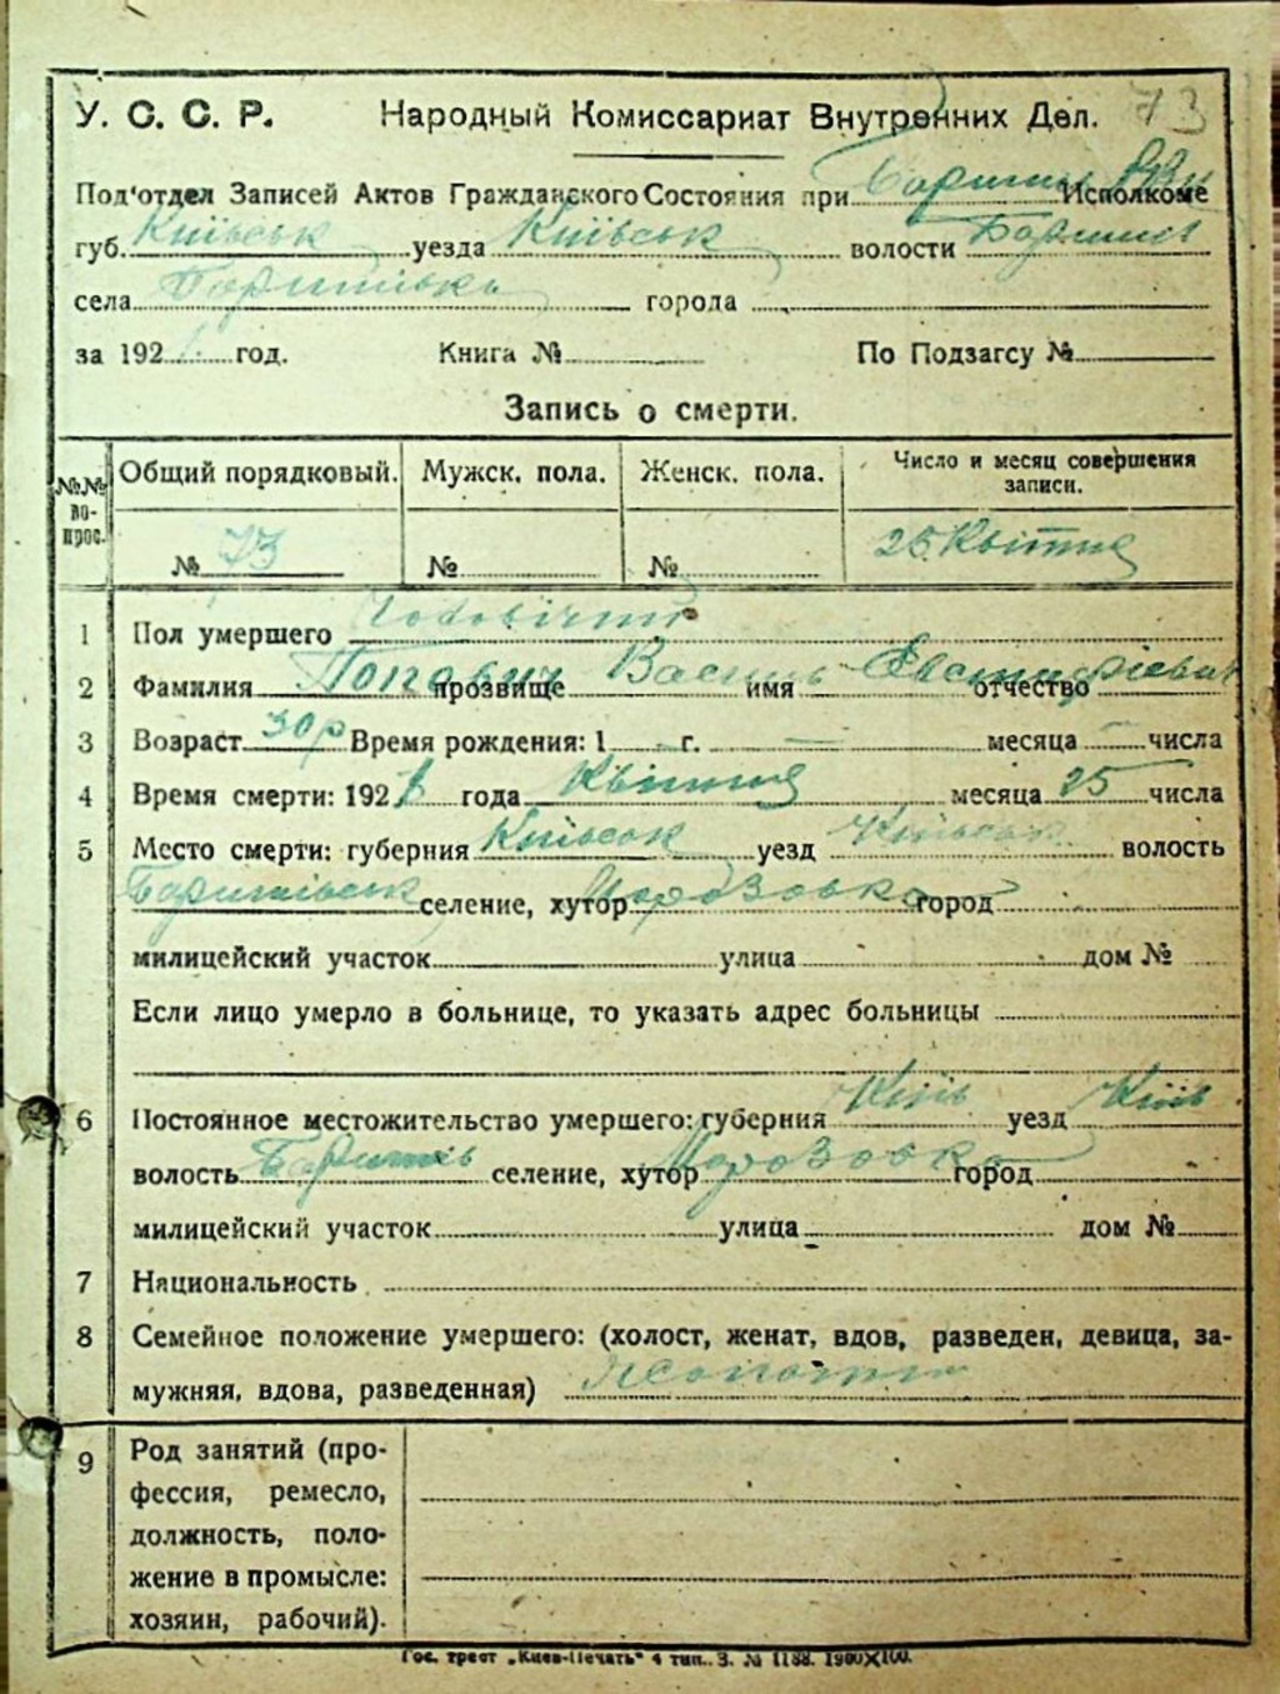 У. С. С. Р. Народный Комиссариат Внутренних Дел. 73
Под'отдел Записей Актов Гражданского Состояния при Исполкоме
губ. Київськ уезда Київськ волости Баришів
села Баришівка города
за 192 год. Книга № По Подзагсу №
Запись о смерти.
№№ во- прос. Общий порядковый. Мужск. пола. Женск. пола. Число и месяц совершения записи.
№ 73 № № 25 Квітня
1 Пол умершего Чоловічий
2 Фамилия Попович прозвище Василь имя Евстафієвич отчество
3 Возраст 30 р Время рождения: 1 г. — месяца числа
4 Время смерти: 192 года Квітня месяца 25 числа
5 Место смерти: губерния Київськ уезд Київськ волость
Баришівськ селение, хутор Морозовка город
милицейский участок улица дом №
Если лицо умерло в больнице, то указать адрес больницы
6 Постоянное местожительство умершего: губерния Київ уезд Київ
волость Баришів селение, хутор Морозовка город
милицейский участок улица дом №
7 Национальность
8 Семейное положение умершего: (холост, женат, вдов, разведен, девица, за-
мужняя, вдова, разведенная) Жонатий
9 Род занятий (про-
фессия, ремесло,
должность, поло-
жение в промысле:
хозяин, рабочий).
Гос. трест „Киев-Печать" 4 тип. З. № 1188. 1900×100.